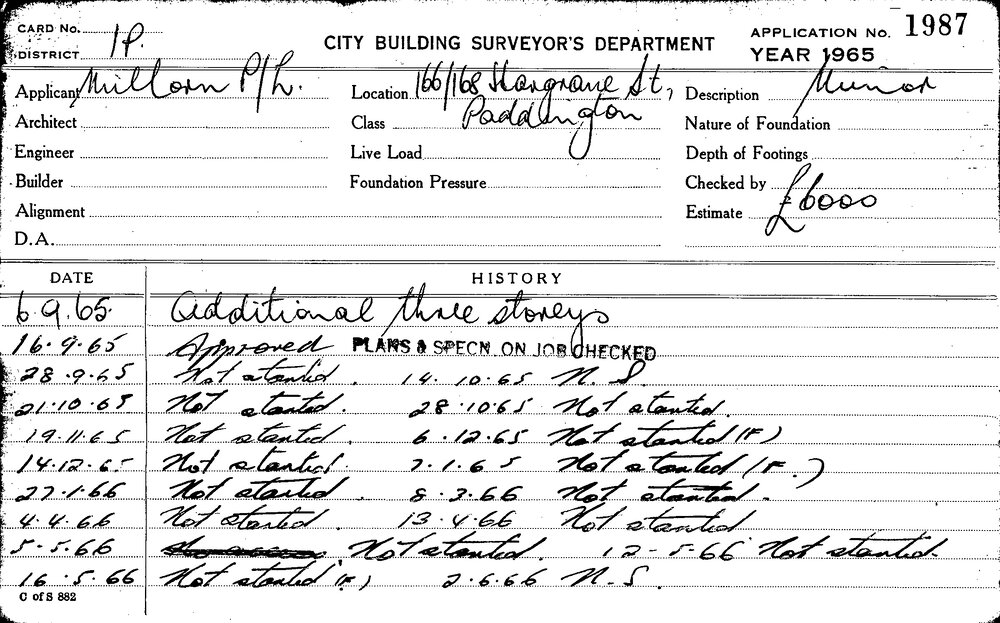 CARD No. APPLICATION No. 1987
DISTRICT 1P. CITY BUILDING SURVEYOR'S DEPARTMENT YEAR 1965
Applicant Millorn P/L. Location 166/168 Hargrave St, Description Minor
Architect Class Paddington Nature of Foundation
Engineer Live Load Depth of Footings
Builder Foundation Pressure Checked by
Alignment Estimate £6000
D.A.
DATE HISTORY
6.9.65. Additional three storeys
16.9.65 Approved PLANS & SPECN. ON JOB CHECKED
28.9.65 Not started. 14.10.65 N.S.
21.10.65 Not started. 28.10.65 Not started.
19.11.65 Not started. 6.12.65 Not started (F)
14.12.65 Not started. 7.1.65 Not started (F.)
27.1.66 Not started. 8.3.66 Not started.
4.4.66 Not started. 13.4.66 Not started
5.5.66 Not started. 12-5-66 Not started
16.5.66 Not started (F.) 2.6.66 N.S.
C of S 882